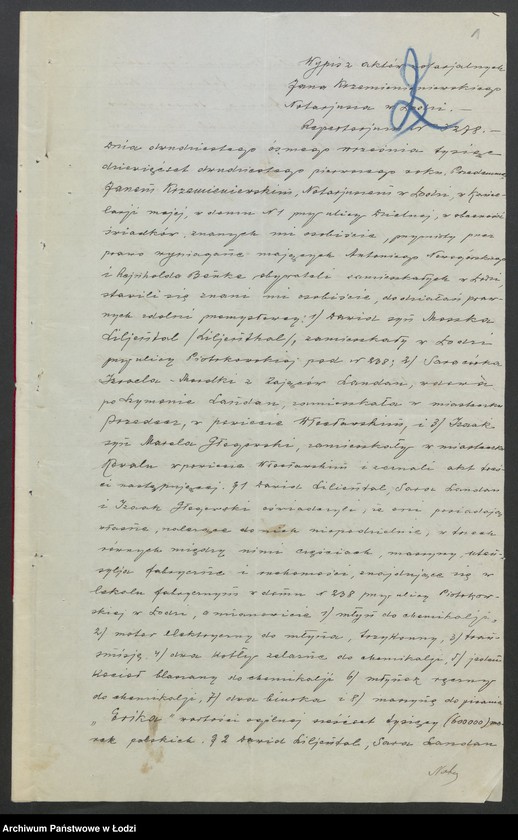 1
Wypis z aktów notarjalnych
Jana Krzemieniewskiego
Notarjusza w Łodzi. —
Repertorjum № 1278. —
Dnia dwudziestego ósmego września tysiąc
dziewięćset dwudziestego pierwszego roku. Przedemną
Janem Krzemieniewskim, Notarjuszem w Łodzi, w kance-
larji mojej, w domu № 1 przy ulicy Dzielnej, w obecności
świadków, znanych mi osobiście, przymioty przez
prawo wymagane mających Antoniego
i Rajnholda Benke obywateli zamieszkałych w Łodzi,
stawili się znani mi osobiście, do działań praw-
nych zdolni przemysłowcy: 1) Dawid syn Moszka
Liljental /Liljenthal/, zamieszkały w Łodzi
przy ulicy Piotrkowskiej pod № 238; 2) Sara córka
Izraela - Mordki z Zająców Landau, wdowa
po Szymonie Landau, zamieszkała w miasteczku
Przedecz, w powiecie Włocławskim, i 3) Izaak
syn Marela Głogowski, zamieszkały w miasteczku
w powiecie Włocławskim i zeznali akt treś-
ci następującej. § 1 Dawid Liljental, Sara Landau
i Izaak Głogowski oświadczyli, że oni posiadają
własne, należące do nich niepodzielnie, w trzech
równych między nimi częściach, maszyny, uten-
sylja fabryczne i ruchomości, znajdujące się w
lokalu fabrycznym w domu № 238 przy ulicy Piotrkow-
skiej w Łodzi, a mianowicie 1) młyn do chemikalji,
2) motor elektryczny do młyna, trzykonny, 3) tran-
smisję, 4) dwa kotły żelazne do chemikalji, 5) jeden
kocioł blaszany do chemikalji 6) młynek ręczny
do chemikalji, 7) dwa biurka i 8) maszynę do pisania
"Erika" wartości ogólnej sześćset tysięcy (600000) ma-
rek polskich. § 2 Dawid Liljental, Sara Landau
Archiwum Państwowe w Łodzi